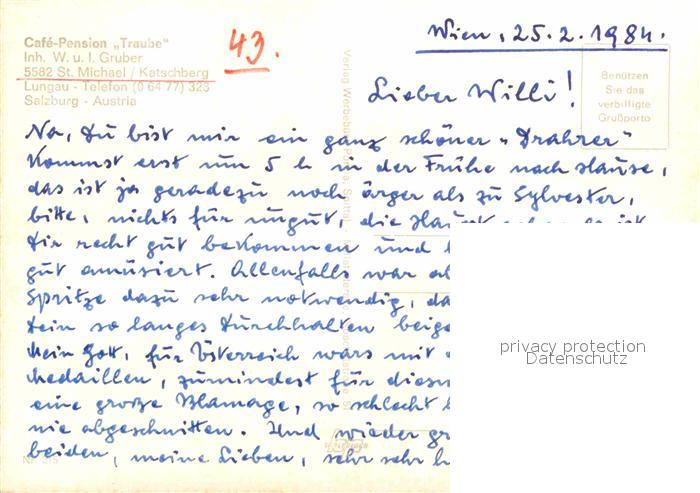 Café-Pension „Traube"
Inh. W. u. I. Gruber
5582 St. Michael / Katschberg
Lungau - Telefon (0 64 77) 323
Salzburg - Austria
43.
Wien, 25.2.1984.
Benützen
Sie das
verbilligte
Grußporto
Lieber Willi!
Na, Du bist mir ein ganz schöner „Drahrer"
Kommst erst um 5 h in der Frühe nach Hause,
das ist ja geradezu noch ärger als zu Sylvester,
bitte, nichts für ungut, die ist
Dir recht gut bekommen und
gut amüsiert. Allenfalls war
Spritze dazu sehr notwendig, da
Dein so langes Durchhalten beige
Mein Gott, für Österreich wars mit
Medaillen, zumindest für diesm
eine große Blamage, so schlecht
nie abgeschnitten. Und wieder gr
beiden, meine Lieben, sehr sehr h
privacy protection
Datenschutz